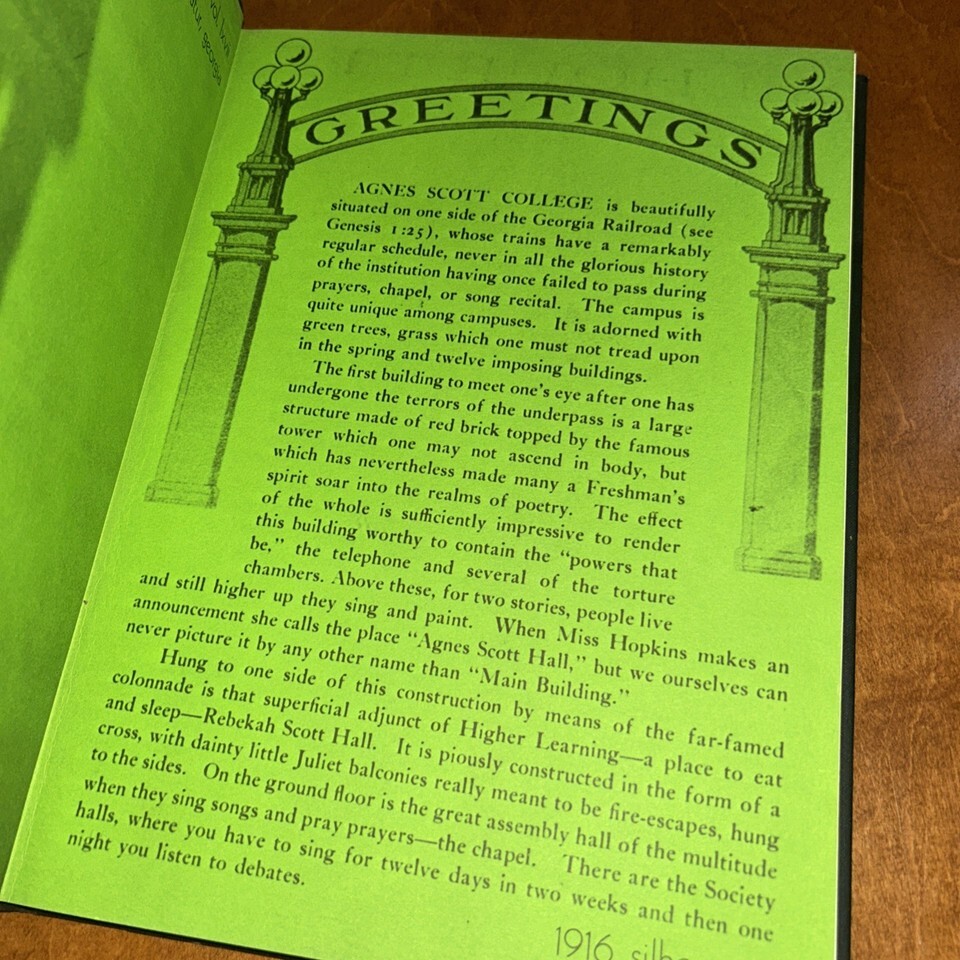 vol. lxvii
georgia
GREETINGS
AGNES SCOTT COLLEGE is beautifully
situated on one side of the Georgia Railroad (see
Genesis 1:25), whose trains have a remarkably
regular schedule, never in all the glorious history
of the institution having once failed to pass during
prayers, chapel, or song recital. The campus is
quite unique among campuses. It is adorned with
green trees, grass which one must not tread upon
in the spring and twelve imposing buildings.
The first building to meet one's eye after one has
undergone the terrors of the underpass is a large
structure made of red brick topped by the famous
tower which one may not ascend in body, but
which has nevertheless made many a Freshman's
spirit soar into the realms of poetry. The effect
of the whole is sufficiently impressive to render
this building worthy to contain the "powers that
be," the telephone and several of the torture
chambers. Above these, for two stories, people live
and still higher up they sing and paint. When Miss Hopkins makes an
announcement she calls the place "Agnes Scott Hall," but we ourselves can
never picture it by any other name than "Main Building."
Hung to one side of this construction by means of the far-famed
colonnade is that superficial adjunct of Higher Learning—a place to eat
and sleep—Rebekah Scott Hall. It is piously constructed in the form of a
cross, with dainty little Juliet balconies really meant to be fire-escapes, hung
to the sides. On the ground floor is the great assembly hall of the multitude
when they sing songs and pray prayers—the chapel. There are the Society
halls, where you have to sing for twelve days in two weeks and then one
night you listen to debates.
1916